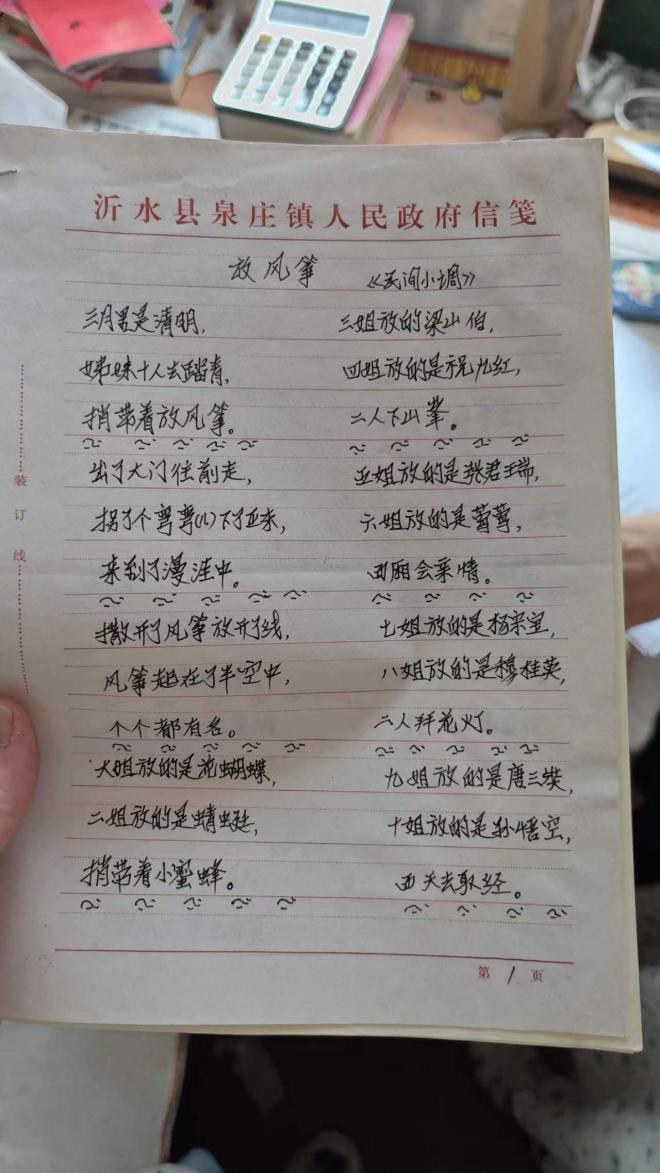 沂水县泉庄镇人民政府信笺
放风筝 《民间小调》
三月里是清明，
姊妹十人去踏青，
捎带着放风筝。
出了大门往前走，
拐了个弯弯(儿)下了正东，
来到了漫洼中。
撒开了风筝放开了线，
风筝起在了半空中，
个个都有名。
大姐放的是花蝴蝶，
二姐放的是蜻蜓，
捎带着小蜜蜂。
三姐放的梁山伯，
四姐放的是祝九红，
二人下山峯。
五姐放的是张君瑞，
六姐放的是莺莺，
西厢会亲情。
七姐放的是杨宗宝，
八姐放的是穆桂英，
二人拜花灯。
九姐放的是唐三奘，
十姐放的是孙悟空，
西天去取经。
装订线
第1页